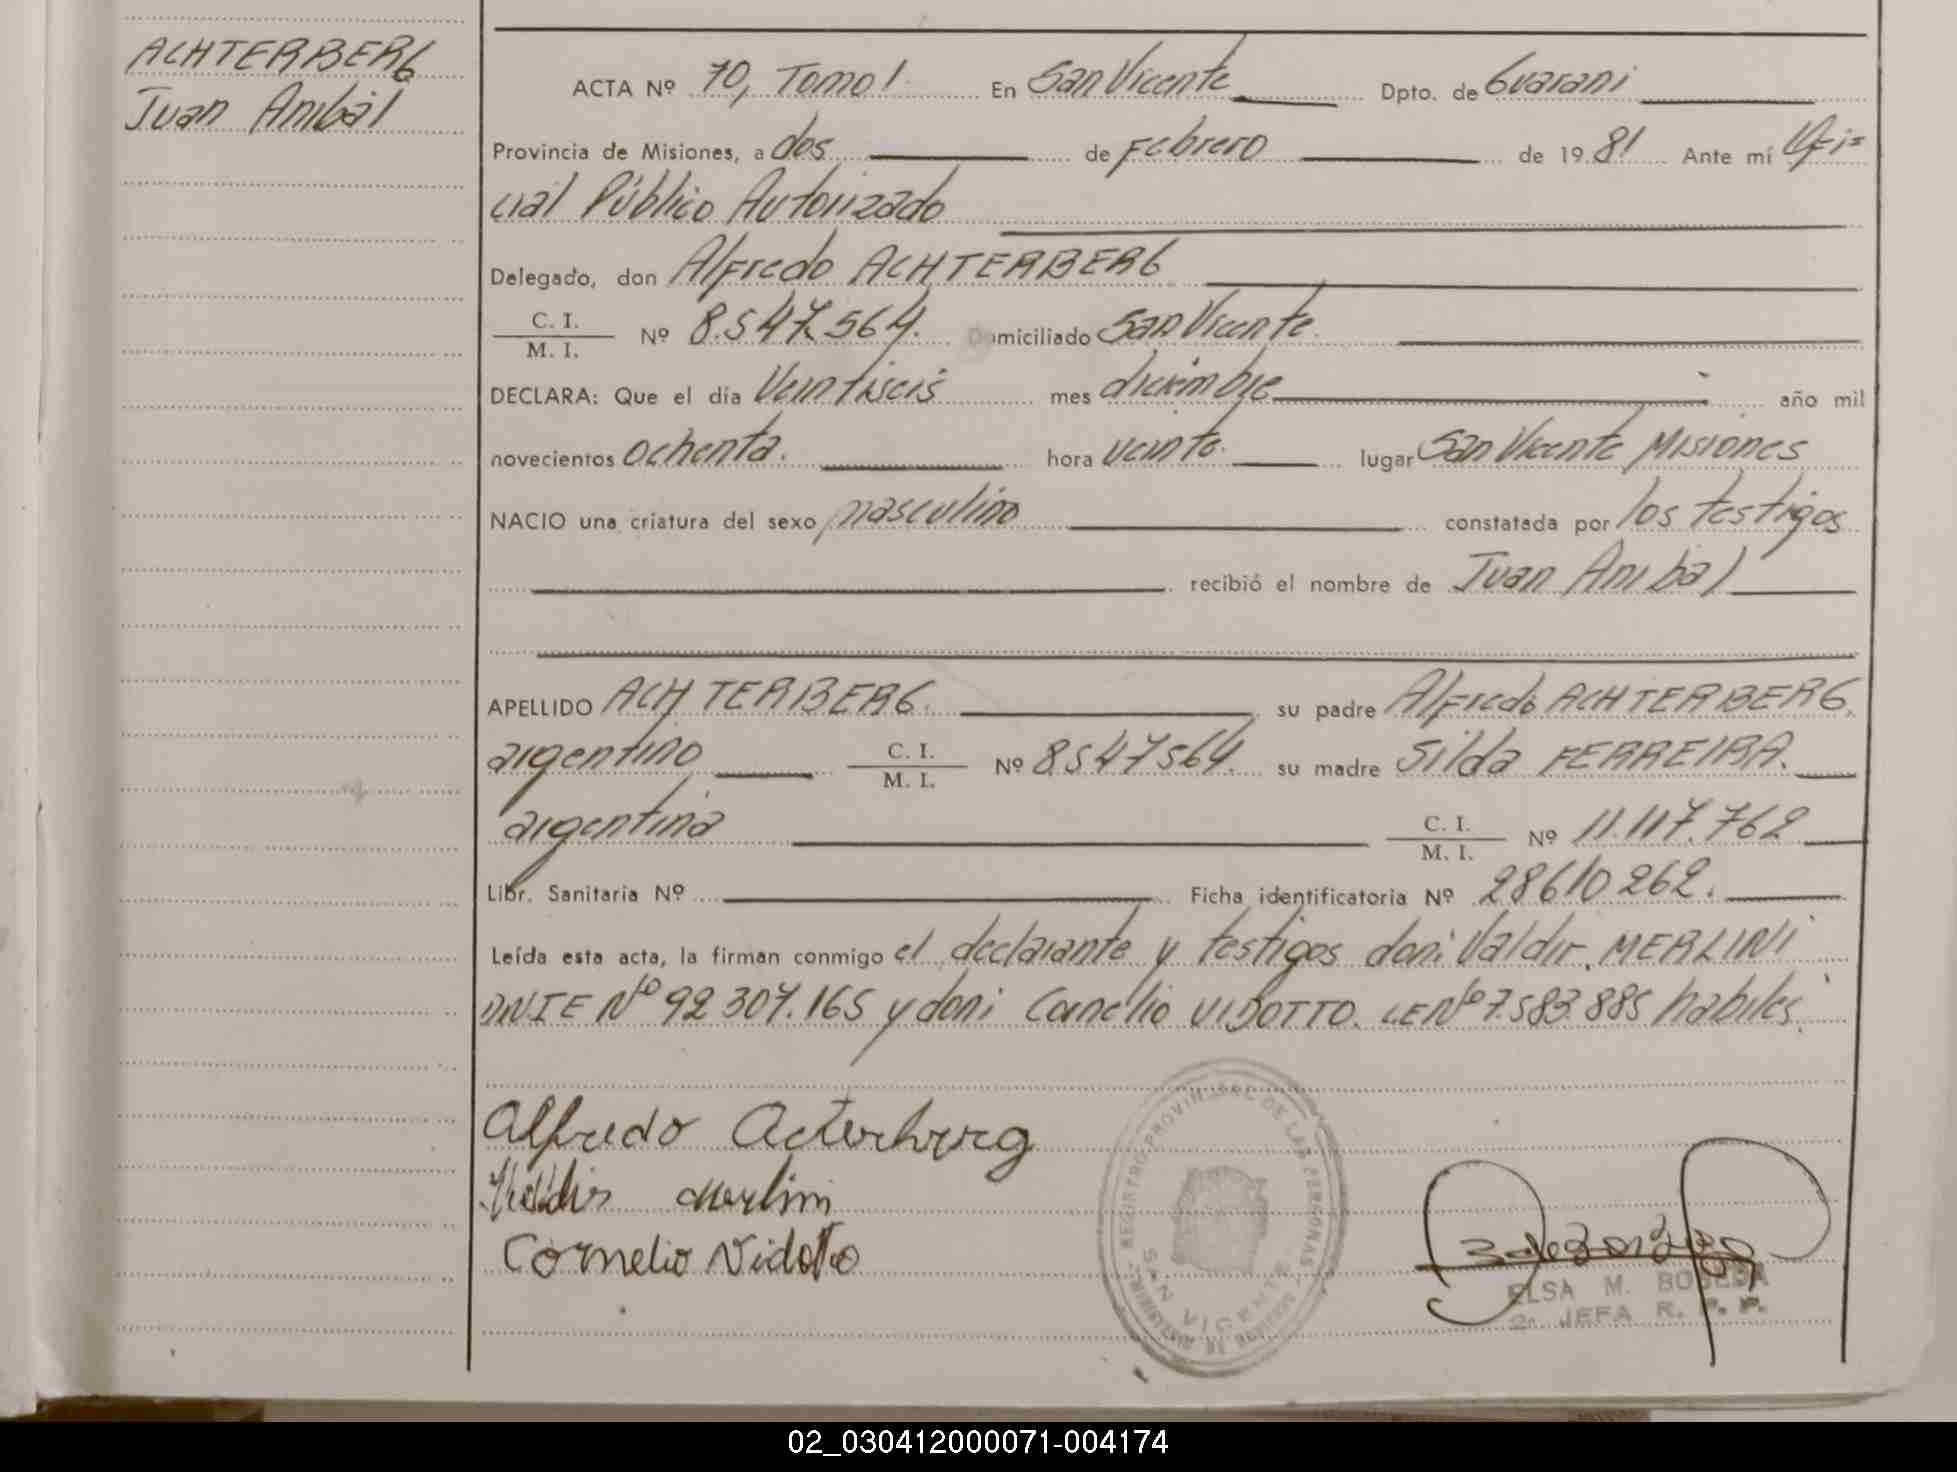 ACHTERBERG
Juan Anibál
ACTA Nº 70, Tomo I En San Vicente Dpto. de Guaraní
Provincia de Misiones, a dos de Febrero de 1981 Ante mí Ofi=
cial Público Autorizado
Delegado, don Alfredo ACHTERBERG
C. I.
M. I. Nº 8.547.564. Domiciliado San Vicente
DECLARA: Que el día Veintiseis mes diciembre año mil
novecientos ochenta. hora veinte. lugar San Vicente Misiones
NACIO una criatura del sexo masculino constatada por los testigos
recibió el nombre de Juan Anibal
APELLIDO ACHTERBERG. su padre Alfredo ACHTERBERG.
argentino C. I.
M. I. Nº 8547564. su madre Silda FERREIRA.
argentina C. I.
M. I. Nº 11.117.762
Libr. Sanitaria Nº Ficha identificatoria Nº 28610262.
Leída esta acta, la firman conmigo el declarante y testigos don: Valdir MERLINI
DNIE Nº 92.307.165 y don: Cornelio VIDOTTO. LE Nº 7.583.885 habiles.
Alfredo Acterberg
Valdir Merlini
Cornelio Vidoto
REGISTRO PROVINCIAL DE LAS PERSONAS
SAN VICENTE
ELSA M.
2a JEFA R. P. P.
02_030412000071-004174